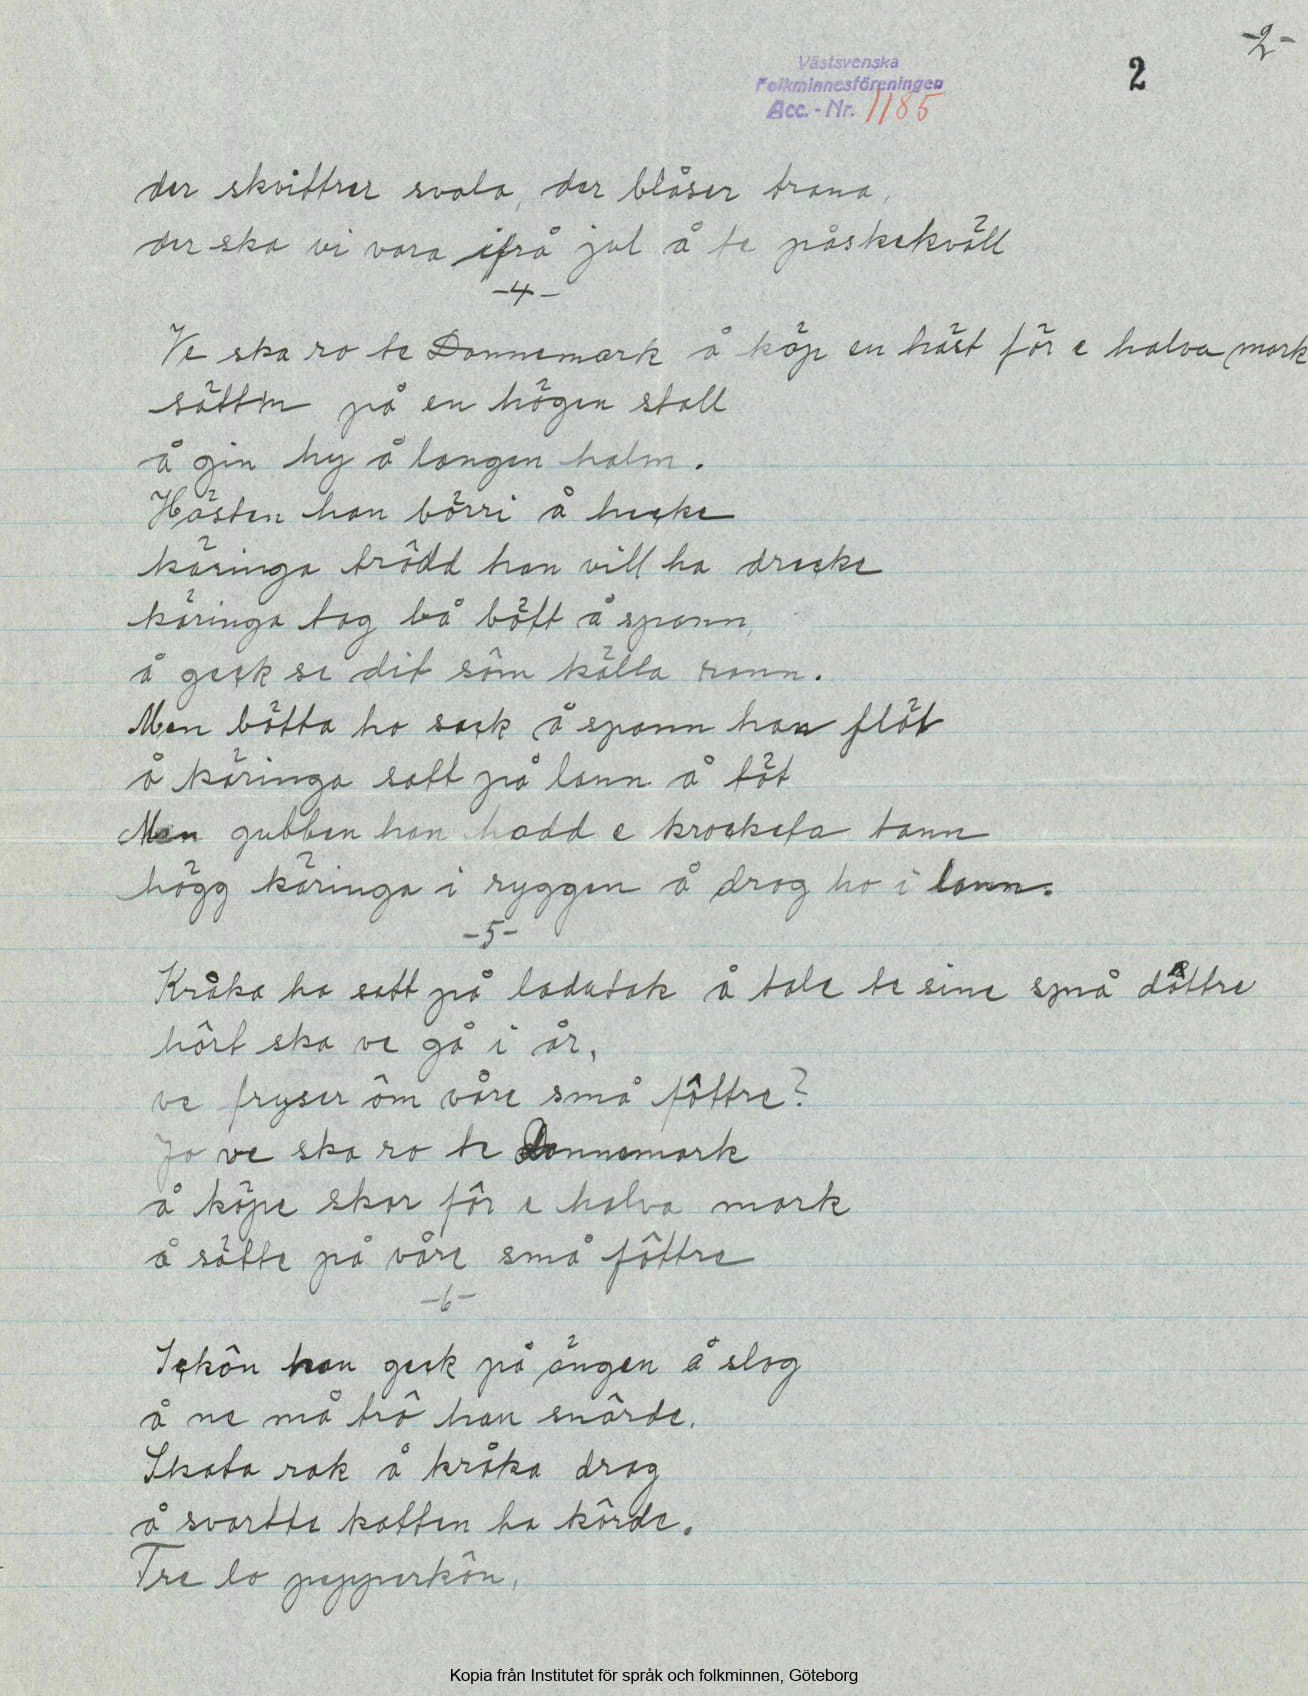 -2-
2
Västsvenska
Folkminnesföreningen
Acc. - Nr. 1185
der skvittrer svala, der blåser trana,
der ska vi vara ifrå jul å te påskekväll
-4-
Ve ska ro te Dannemark å köp en häst för e halva mark
sätt'n på en högen stall
å gin hy å langen halm.
Hästen han börri å hecke
käringa trôdd han vill ha drecke
käringa tag bå bött å spann,
å geck se dit sôm källa rann.
Men bötta ho sack å spann han flöt
å käringa satt på lann å töt
Men gubben han hadd e krocketa tann
högg käringa i ryggen å drog ho i lann.
-5-
Kråka ho satt på ladutak å tale te sine små dôttre
hôrt ska ve gå i år,
ve fryser ôm våre små fôttre?
Jo ve ska ro te Dannemark
å köpe skor fôr e halva mark
å sätte på våre små fôttre
-6-
Ickôn han geck på ängen å slog
å ne må trô han snôrde.
Skata rak å kråka drog
å svartte katten ha kôrde.
Tre lo pepperkôn,
Kopia från Institutet för språk och folkminnen, Göteborg